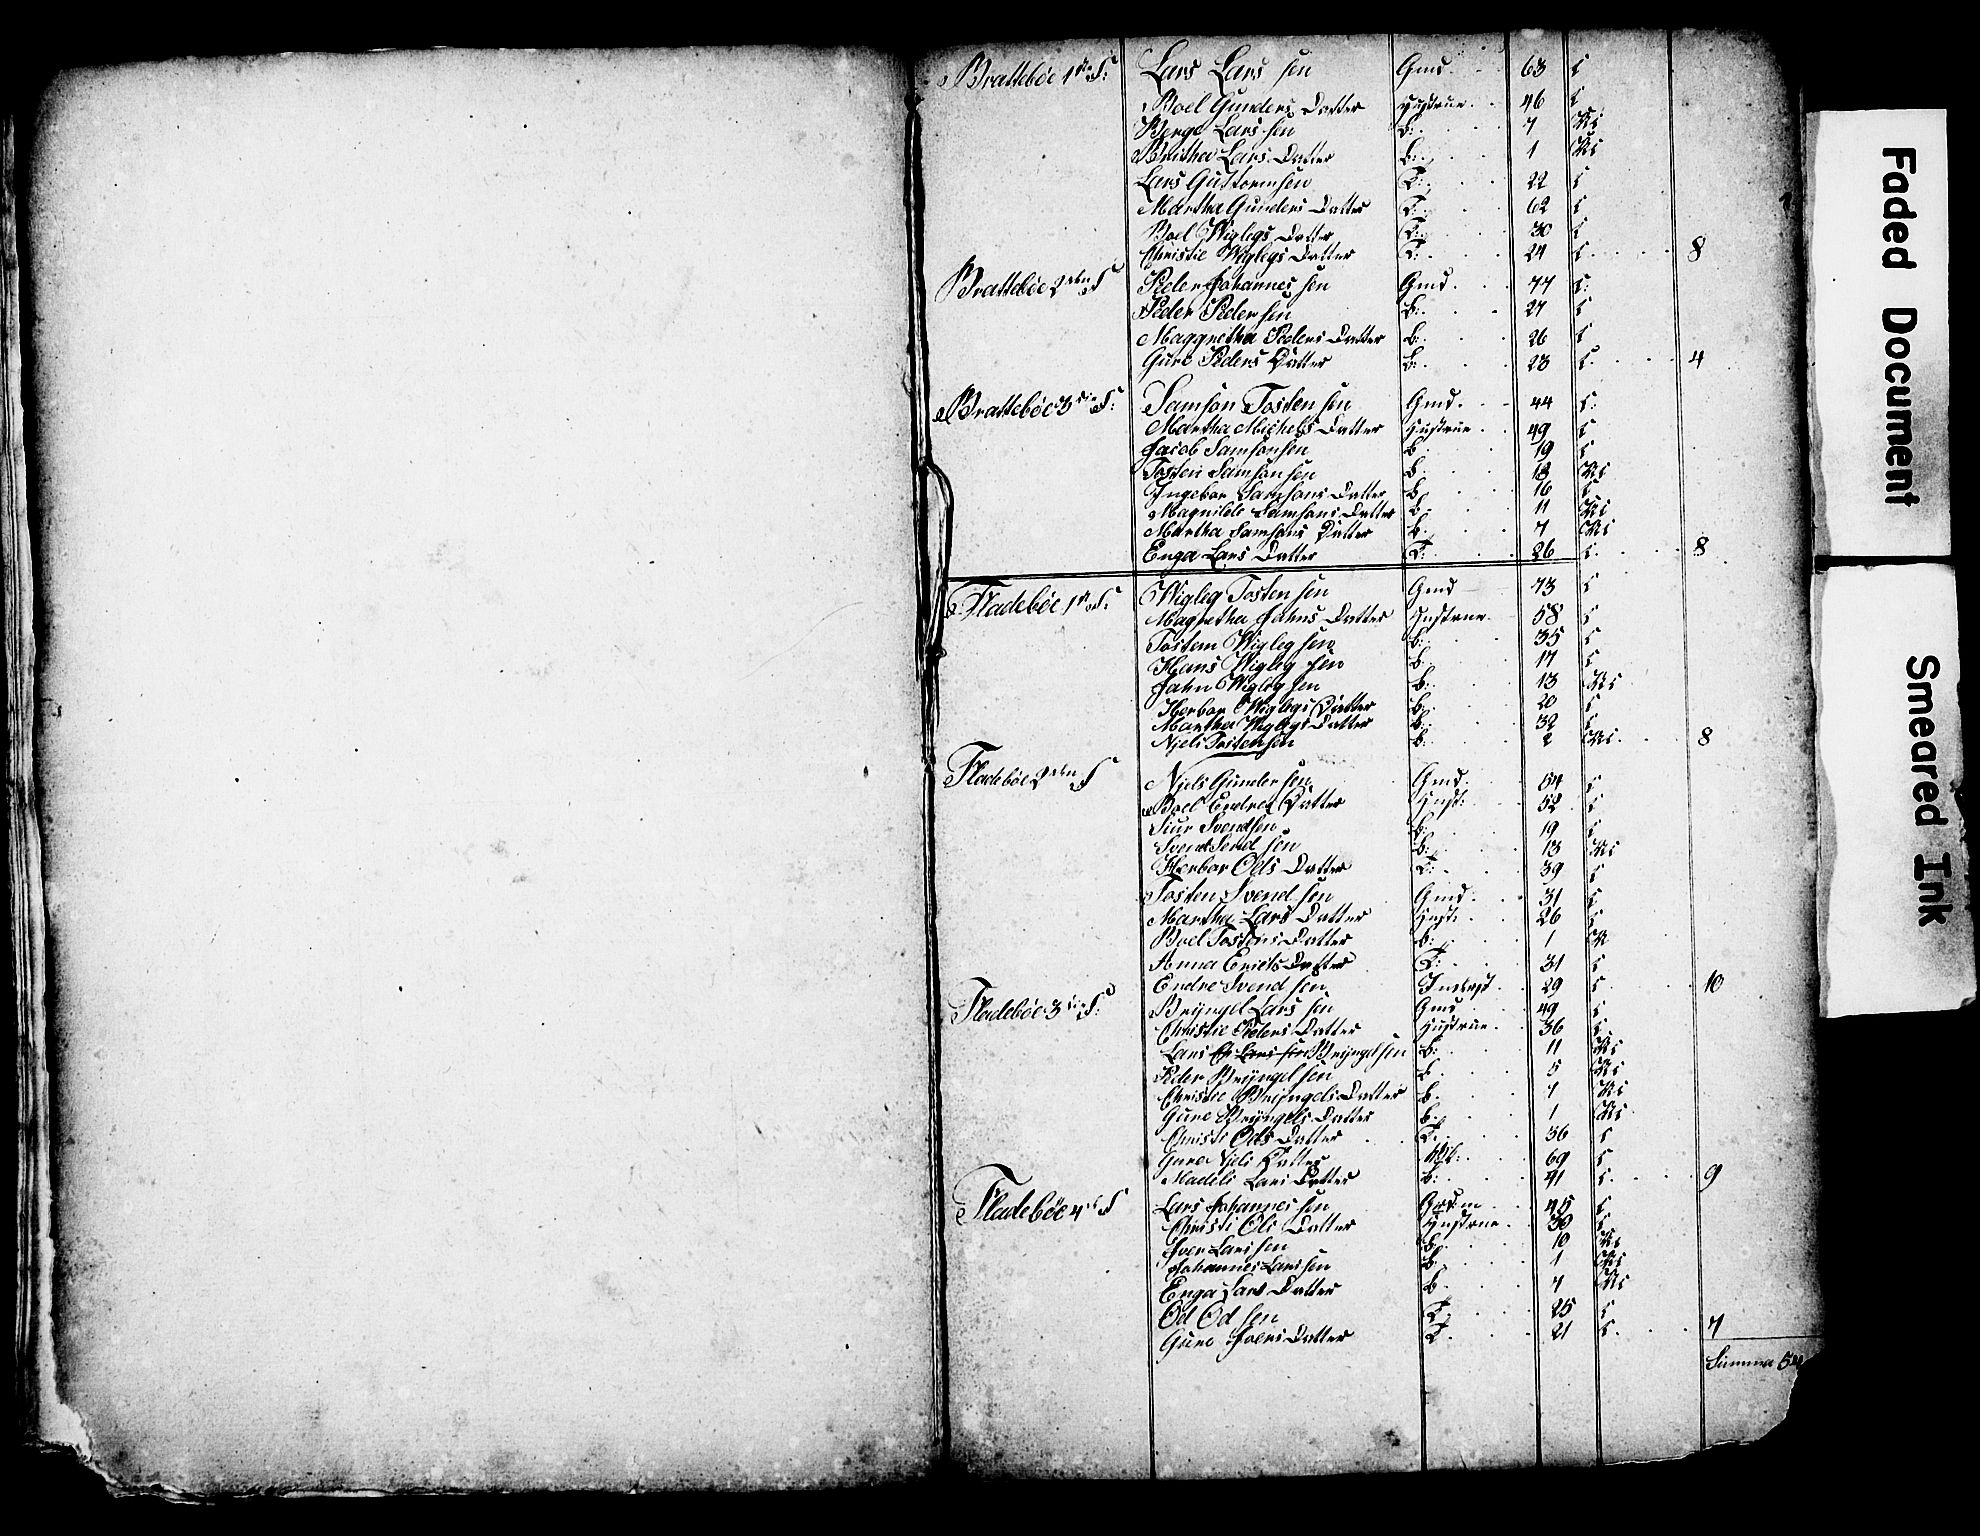 Brattebøe 1ste S: Lars Lars sen Gmd. 63 C
Boel Gunders Datter Hustrue 46 C
Berge Lars sen b: 7 Uc
Britha Lars Datter b: 1 Uc
Lars Guttormsen T: 22 C
Martha Gunders Datter T: 62 C
Boel Wiglegs Datter T: 30 C
Christie Wiglegs Datter T: 24 C 8
Brattebøe 2den S Peder Johannes sen Gmd 77 C:
Peder Peder sen b: 27 C
Maggretha Peders Datter b: 26 C
Guro Peders Datter b: 23 C 4
Brattebøe 3die S: Samson Tosten sen Gmd. 44 C:
Martha Michels Datter Hustrue 49 C
Jacob Samsonsen b: 19 C
Tosten Samsonsen b: 13 Uc
Ingebor Samsons Datter b: 16 C
Magnilde Samsons Datter b: 11 Uc
Martha Samsons Datter b: 7 Uc
Enga Lars Datter T: 26 C 8
Fladebøe 1ste S: Wigleg Tosten sen Gmd 73 C
Magretha Jahns Datter Hustrue 58 C
Tosten Wigleg sen b: 35 C
Hans Wigleg sen b: 17 C
Jahn Wigleg sen b: 13 Uc
Herbor Wiglegs Datter b: 20 C
Martha Wiglegs Datter b: 32 C
Njels Tostensen b: 2 Uc 8
Fladebøe 2den S Njels Gunder sen Gmd 54 C
Boel Endres Datter Hust: 52 C
Siur Svendsen b: 19 C
Svend Svend sen b: 13 Uc
Herbor Ods Datter T: 39 C
Tosten Svend sen Gmd: 31 C
Martha Lars Datter Hust: 26 C
Boel Tostens Datter b: 1 U
Anna Erichs Datter T: 31 C
Endre Svend sen Inderst 29 C 10
Fladebøe 3die S: Brÿngel Lars sen Gmd 49 C
Christie Peders Datter Hustrue 36 C
Lars Brÿngelsen b: 11 Uc
Peder Brÿngel sen b. 5 Uc
Christie Brÿngels Datter b. 7 Uc
Guro Brÿngels Datter b. 1 Uc
Christi Ods Datter T. 36 C
Guro Njels Datter 69 C
Madeli Lars Datter b: 41 C 9
Fladebøe 4de S Lars Johannes sen 45 C
Christi Ols Datter Hustrue 30 C
Iver Lars sen b: 10 Uc
Johannes Lars sen b: 1 Uc
Enga Lars Datter b. 7 Uc
Od Od sen T. 25 C
Guro Ivers Datter T. 21 C 7
Summa 54
Faded Document
Smeared Ink